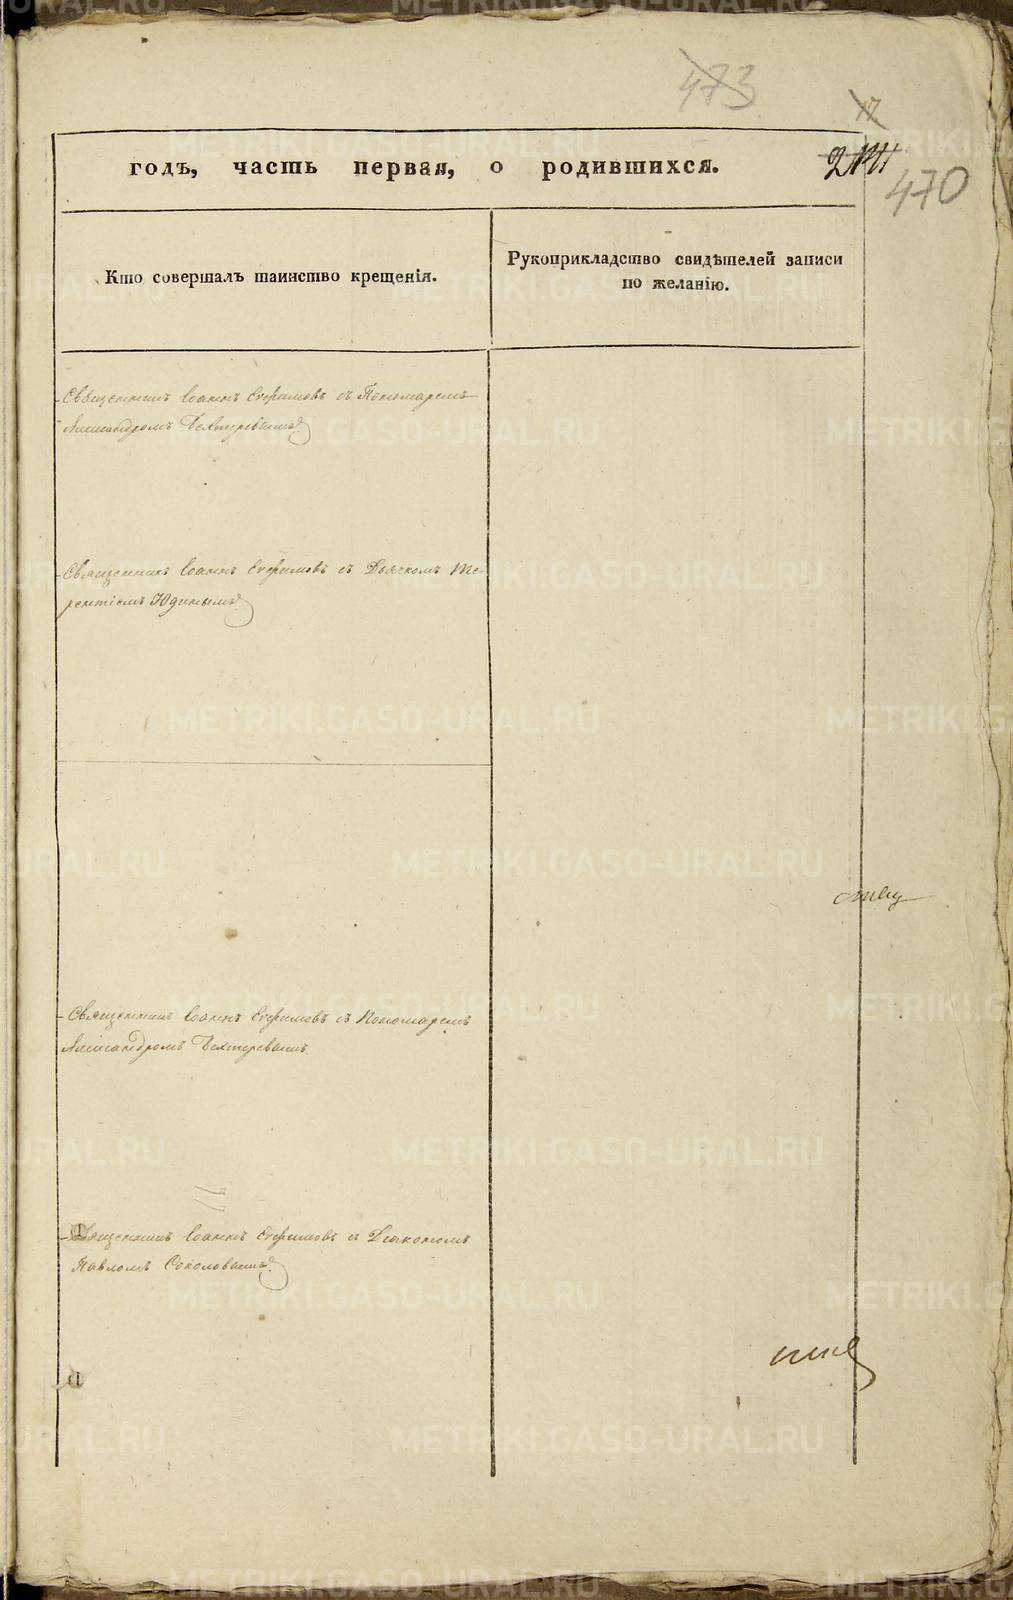 473
17
годъ, часть первая, о родившихся.
470
Кто совершалъ таинство крещенія.
Рукоприкладство свидѣтелей записи
по желанію.
Священникъ Іоаннъ Ефимовъ съ Пономаремъ
Александромъ Бехтеревымъ
Священникъ Іоаннъ Ефимовъ съ Дьячкомъ Те-
рентіемъ Юдинымъ
Священникъ Іоаннъ Ефимовъ съ Пономаремъ
Александромъ Бехтеревымъ
Священникъ Іоаннъ Ефимовъ съ Діакономъ
Павломъ Соколовымъ
METRIKI.GASO-URAL.RU